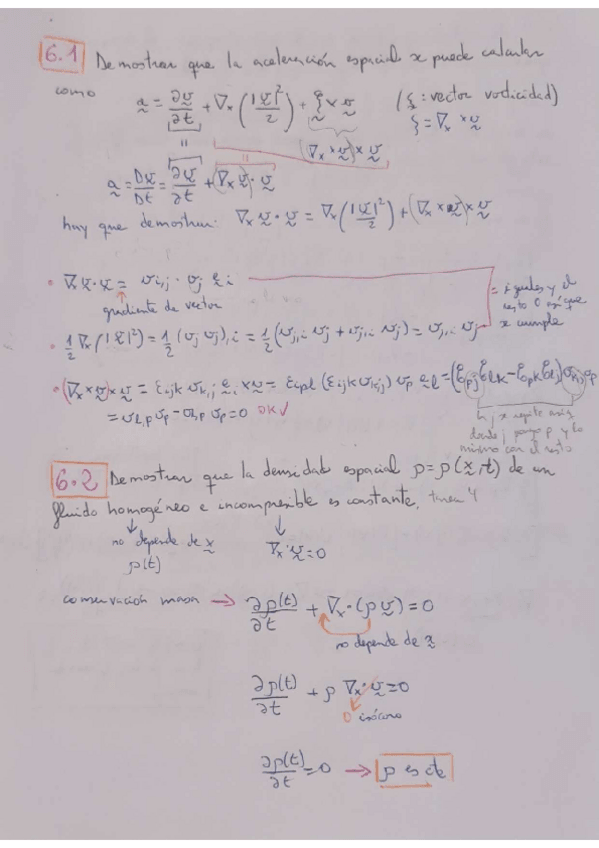 6.1 Demostrar que la aceleración espacial se puede calcular
como a = ∂v/∂t + ∇x (|v|²/2) + ξ × v (ξ: vector vorticidad)
ξ = ∇x × v
(∇x × v) × v
a = Dv/Dt = ∂v/∂t + (∇x v) · v
hay que demostrar: ∇x v · v = ∇x (|v|²/2) + (∇x × v) × v
• ∇x v · v = vi,j · vj ei
gradiente de vector
= iguales y el
resto 0 así que
se cumple
• 1/2 ∇x (|v|²) = 1/2 (vj vj),i = 1/2 (vj,i vj + vj,i vj) = vj,i vj
• (∇x × v) × v = εijk vk,j ei × v = εipl (εijk vk,j) vp el = (δpj δlk - δpk δlj) vk,j vp
= vl,p vp - vl,p vp = 0 OK ✓
la j se repite
donde j pongo p y lo
mismo con el resto
6.2 Demostrar que la densidad espacial ρ = ρ(x,t) de un
fluido homogéneo e incompresible es constante. tarea 4
no depende de x
ρ(t)
∇x · v = 0
conservación masa → ∂ρ(t)/∂t + ∇x · (ρ v) = 0
no depende de x
∂ρ(t)/∂t + ρ ∇x · v = 0
0 isócoro
∂ρ(t)/∂t = 0 → ρ es cte